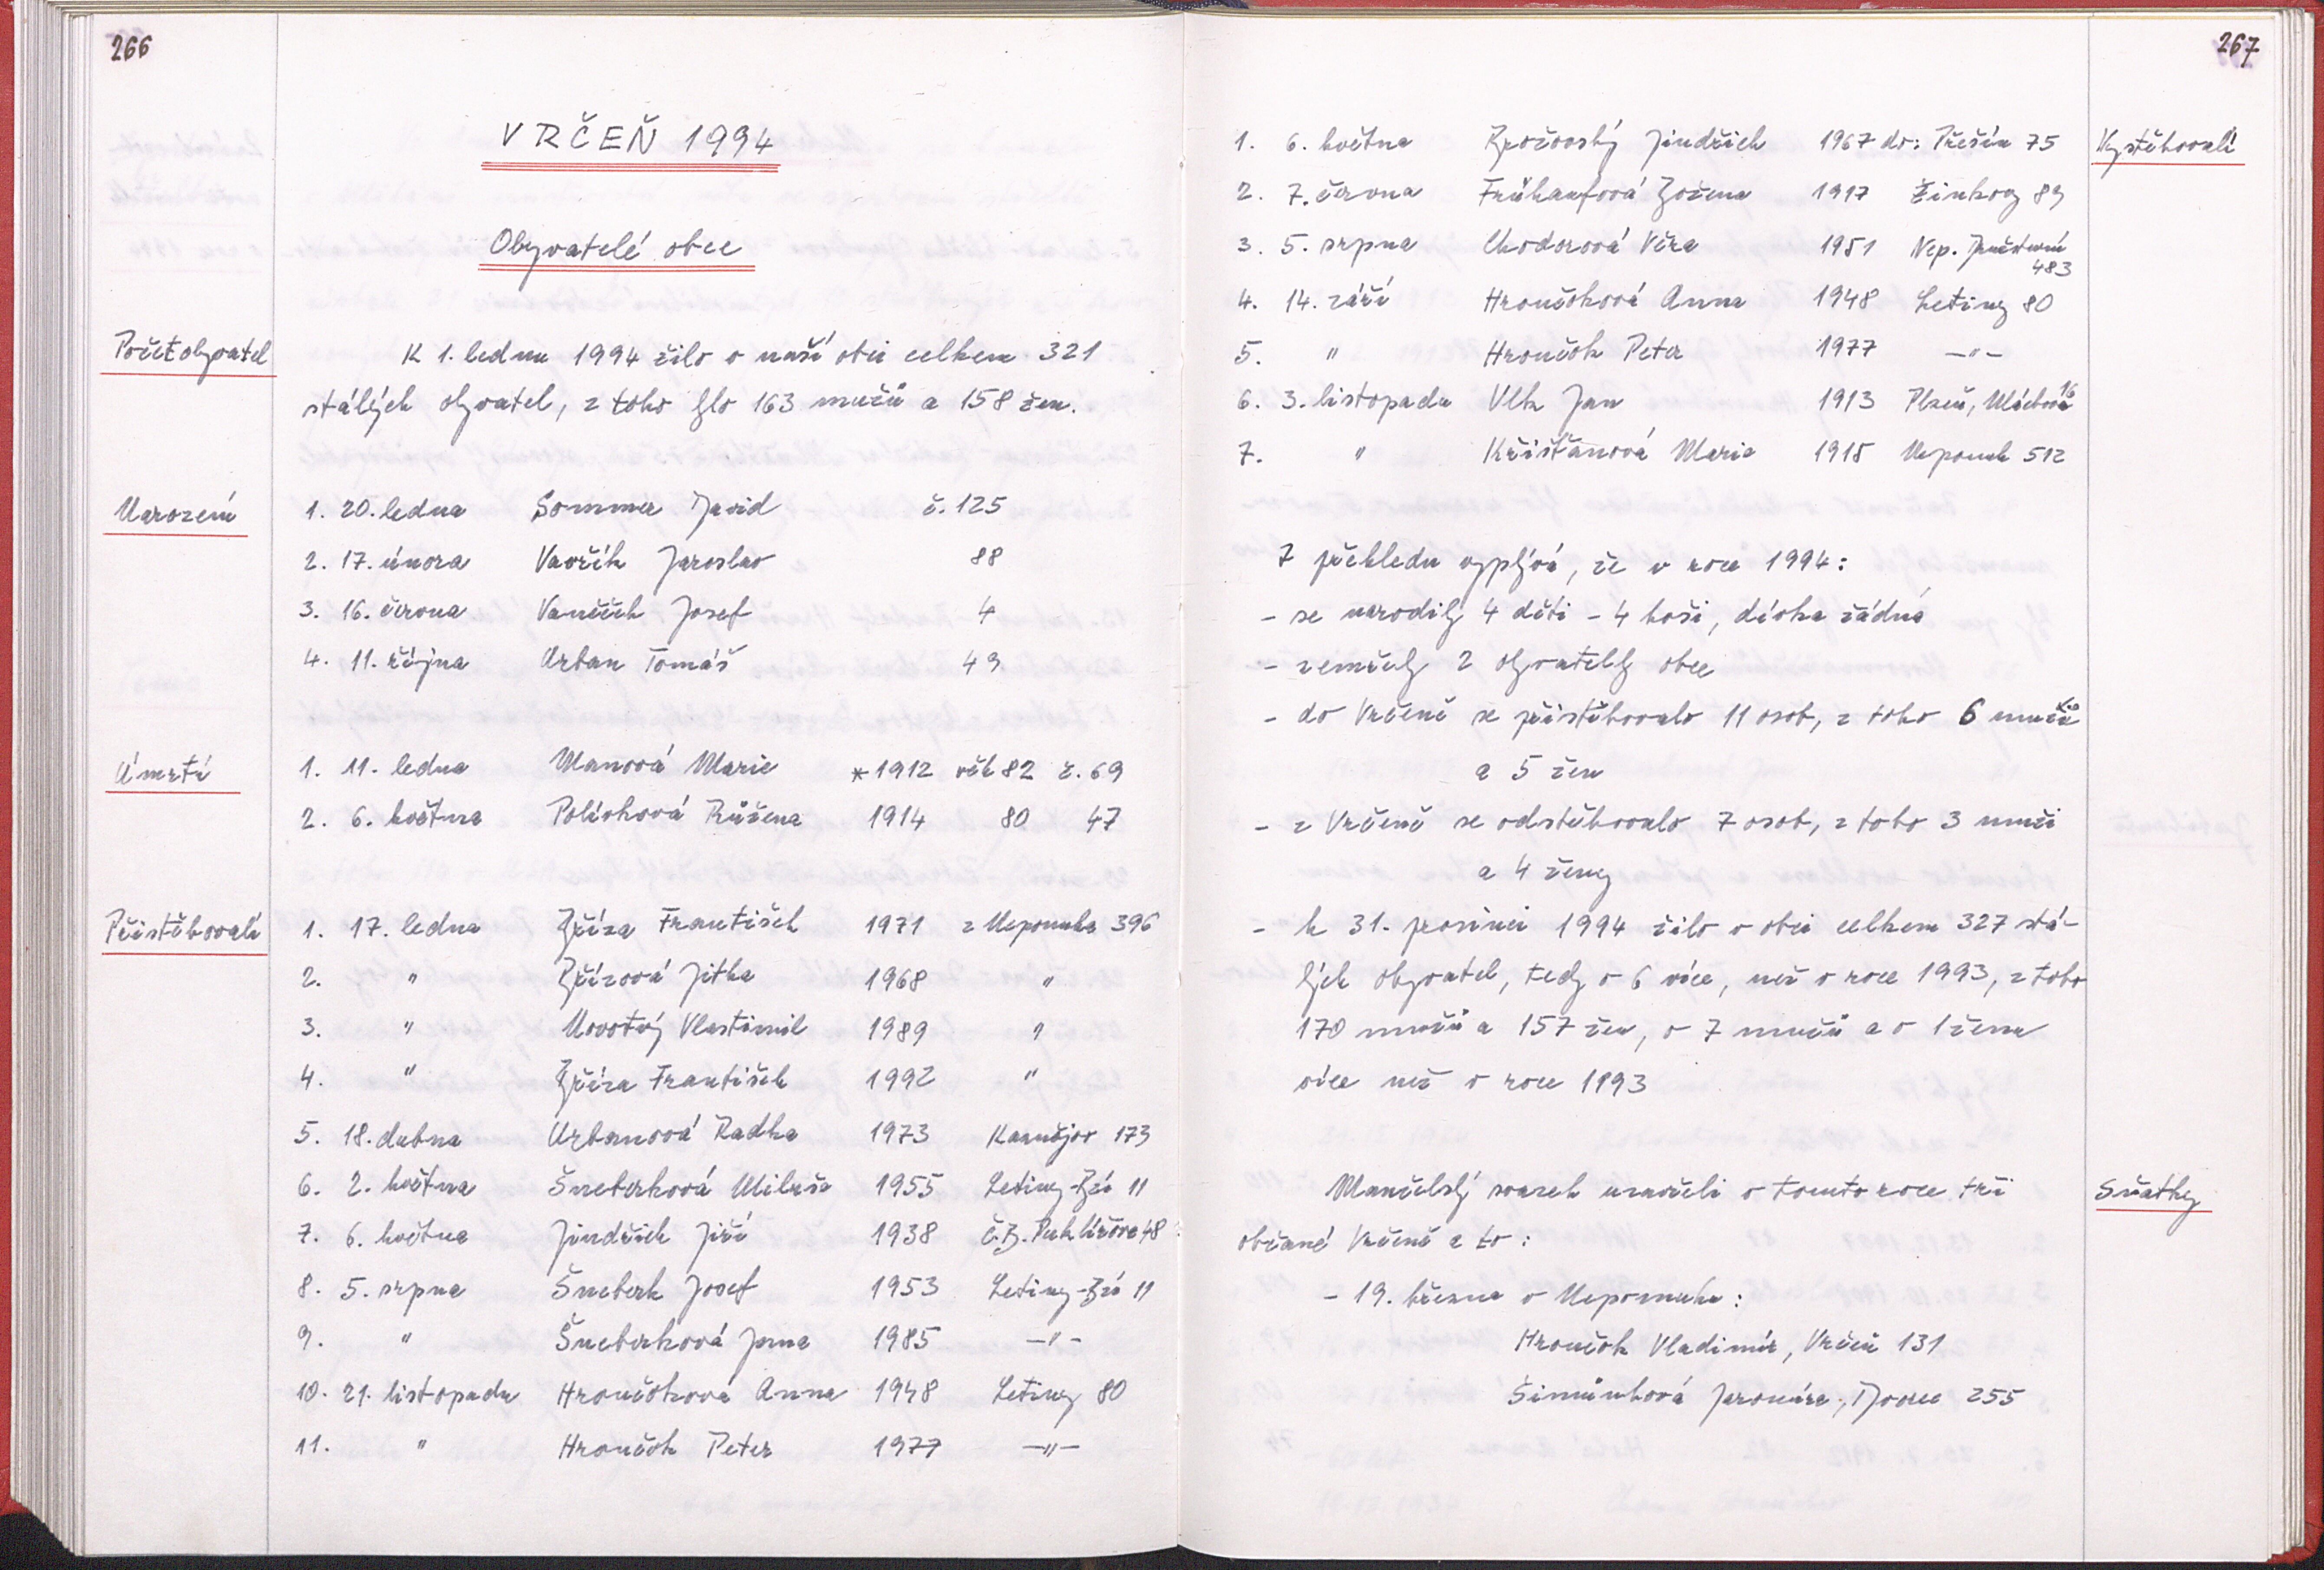 266
VRČEŇ 1994
Obyvatelé obce
Počet obyvatel
K 1. lednu 1994 žilo v naší obci celkem 321
stálých obyvatel, z toho bylo 163 mužů a 158 žen.
Narození
1. 20. ledna Sommer David č. 125
2. 17. února Vavřík Jaroslav 88
3. 16. června Vaněček Josef 4
4. 11. října Urban Tomáš 49
Úmrtí
1. 11. ledna Manová Marie *1912 věk 82 č. 69
2. 6. května Polívková Růžena 1914 80 47
Přistěhovalí
1. 17. ledna Bříza František 1971 z Nepomuka 396
2. " Břízová Jitka 1968 "
3. " Novotný Vlastimil 1989 "
4. " Bříza František 1992 "
5. 18. dubna Urbanová Radka 1973 Kasejov 173
6. 2. května Šneberková Miluše 1955 Letiny-Bzí 11
7. 6. května Jindřich Jiří 1938 Č.B. Puklicova 48
8. 5. srpna Šneberk Josef 1953 Letiny-Bzí 11
9. " Šneberková Jana 1985 -"-
10. 21. listopadu Hrončoková Anna 1948 Letiny 80
11. " Hrončok Peter 1977 -"-
267
Vystěhovalí
1. 6. května Brožovský Jindřich 1967 do: Přešín 75
2. 7. června Frühaufová Božena 1917 Žinkovy 89
3. 5. srpna Chodorová Věra 1951 Nep.
483
4. 14. září Hrončoková Anna 1948 Letiny 80
5. " Hrončok Peter 1977 -"-
6. 3. listopadu Vlk Jan 1913 Plzeň, 16
7. " Křišťanová Marie 1915 Nepomuk 512
Z přehledu vyplývá, že v roce 1994:
- se narodily 4 děti - 4 hoši, dívka žádná
- zemřely 2 obyvatelky obce
- do Vrčeně se přistěhovalo 11 osob, z toho 6 mužů
a 5 žen
- z Vrčeně se odstěhovalo 7 osob, z toho 3 muži
a 4 ženy
- k 31. prosinci 1994 žilo v obci celkem 327 stá-
lých obyvatel, tedy o 6 více, než v roce 1993, z toho
170 mužů a 157 žen, o 7 mužů a o 1 ženu
více než v roce 1993
Sňatky
Manželský svazek uzavřeli v tomto roce tři
občané Vrčeně a to:
- 19. března v Nepomuku:
Hrončok Vladimír, Vrčeň 131
Šimůnková Jaromíra, Dvorec 255